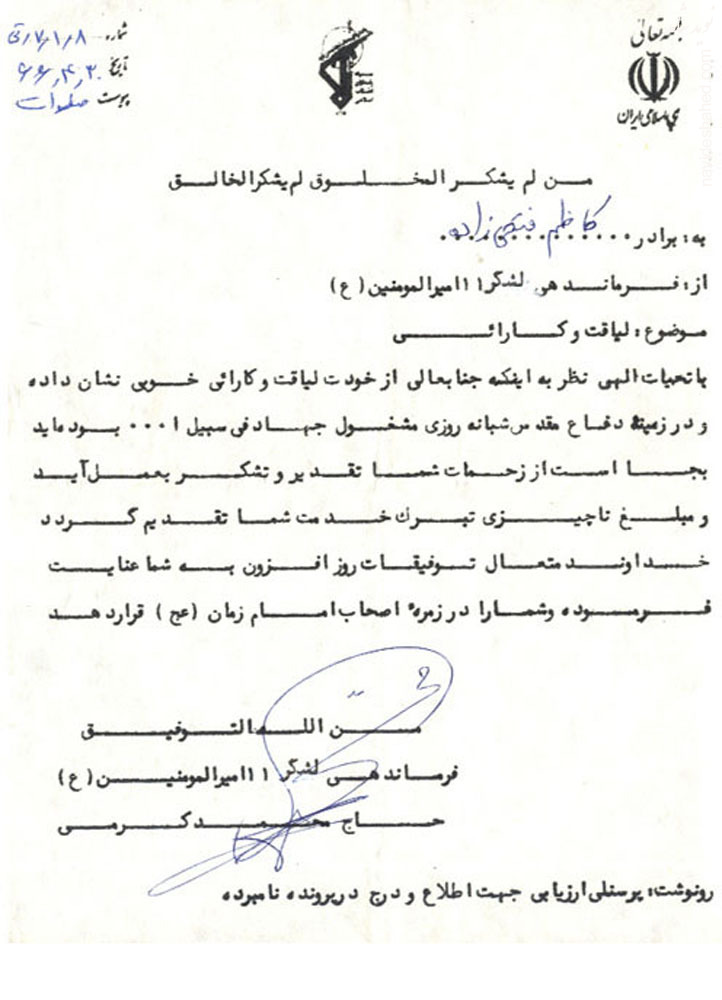 بسمه تعالی
شماره ۸/۱/۷/ق
تاریخ ۶۶,۴,۲۰
پیوست صلوات
من لم یشکر المخلوق لم یشکرالخالق
به: برادر کاظم فتحی زاده
از: فرماندهی لشگر ۱۱ امیرالمومنین (ع)
موضوع: لیاقت و کارائی
با تحیات الهی نظر به اینکه جنابعالی از خود ت لیاقت و کارائی خوبی نشان داده
و در زمینهٔ دفاع مقدس شبانه روزی مشغول جهاد فی سبیل ا ۰۰۰ بوده اید
بجا است از زحمات شما تقدیر و تشکر بعمل آید
و مبلغ ناچیزی تبرك خدمت شما تقدیم گردد
خداوند متعال توفیقات روز افزون به شما عنایت
فرموده وشمارا در زمرهٔ اصحاب امام زمان (عج) قرار دهد
من اللـه التوفیق
فرماندهی لشگر ۱۱ امیرالمومنین (ع)
حاج محمد کرمی
رونوشت: پرسنلی ارزیابی جهت اطلاع و درج در پرونده نامبرده